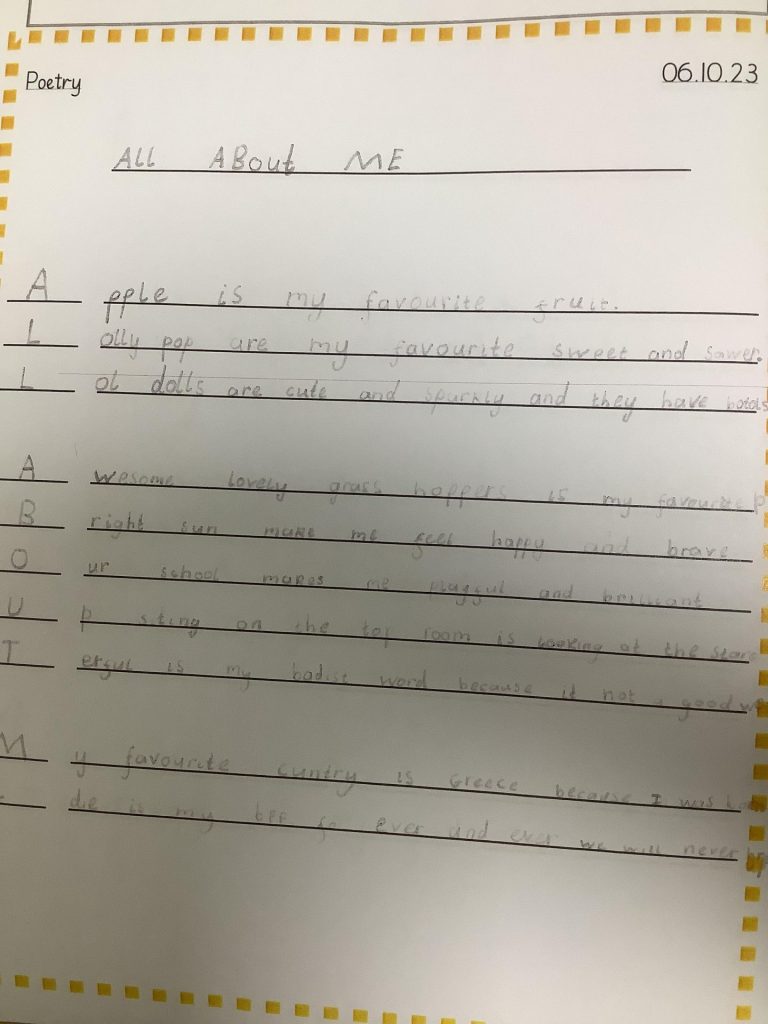 Poetry
06.10.23
ALL ABout ME
A pple is my favourite fruit.
L olly pop are my favourite sweet and sower.
L ol dolls are cute and sparkly and they have
A wesome lovely grass hoppers is my favourite
B right sun make me feel happy and brave
O ur school makes me playful and brilliant
U p sting on the top room is looking at the stars
T erful is my badist word because it not a good
M y favourite cuntry is Greece because I was
die is my bff fo ever and ever we will never